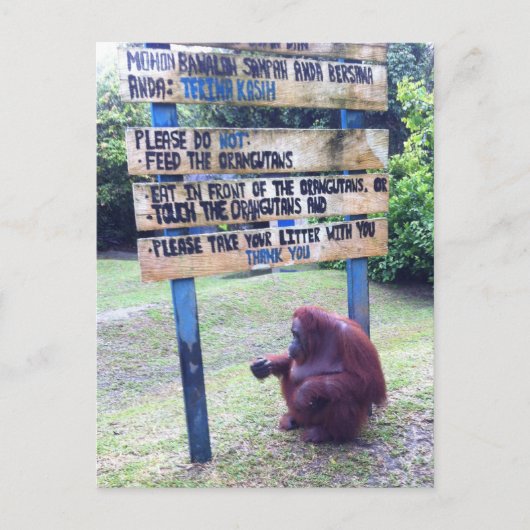 MOHON BAWALAH SAMPAH ANDA BERSAMA
ANDA: TERIMA KASIH
PLEASE DO NOT:
• FEED THE ORANGUTANS
• EAT IN FRONT OF THE ORANGUTANS, OR
• TOUCH THE ORANGUTANS AND
• PLEASE TAKE YOUR LITTER WITH YOU
THANK YOU